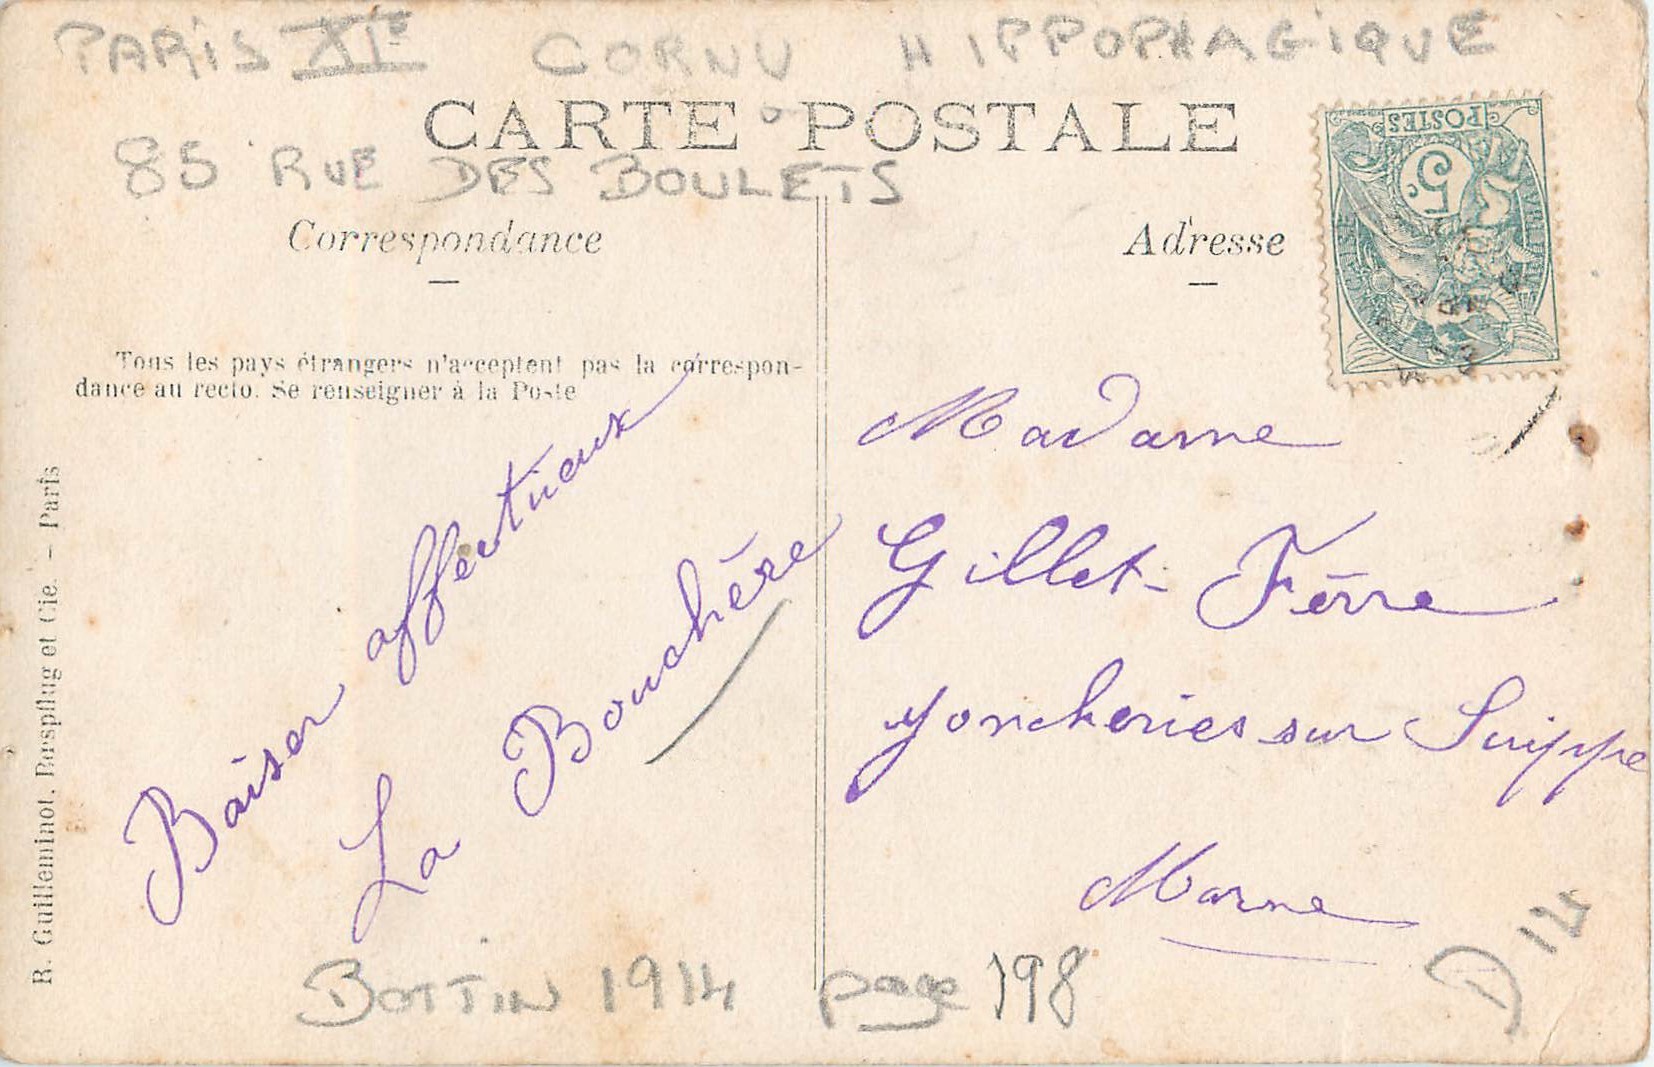 PARIS XIe CORNU HIPPOPHAGIQUE
CARTE POSTALE
85 RUE DES BOULETS
Correspondance
Adresse
POSTES
5c
Tous les pays étrangers n'acceptent pas la correspon-
dance au recto. Se renseigner à la Poste
Baiser affectueux
La Bouchère
Madame
Gillet-Férre
Joncheries sur Suippe
Marne
R. Guilleminot, Bespflug et Cie. - Paris
BOTTIN 1914 page 198
D 14